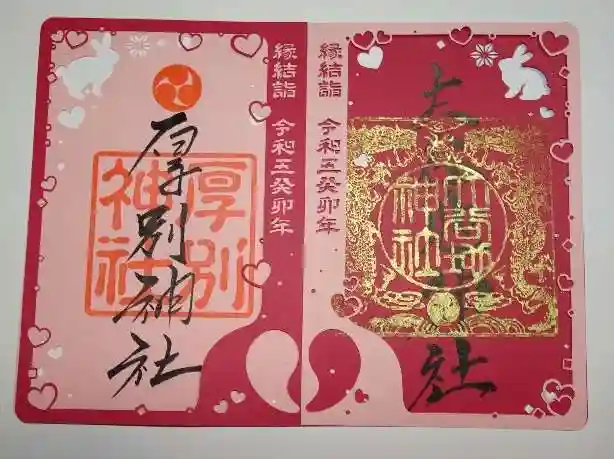 厚別神社
厚別
神社
縁結詣 令和五癸卯年
縁結詣 令和五癸卯年
大谷地神社
大谷地
神社